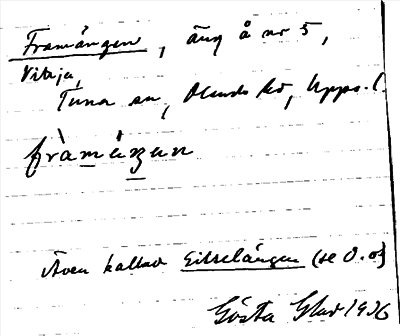 Framängen, äng å nr 5,
Vibja,
Tuna sn, Olands hd, Upps. l.
fràmáŋan
Även kallad Eitselängen (se d. o.)
Gösta Glad 1936